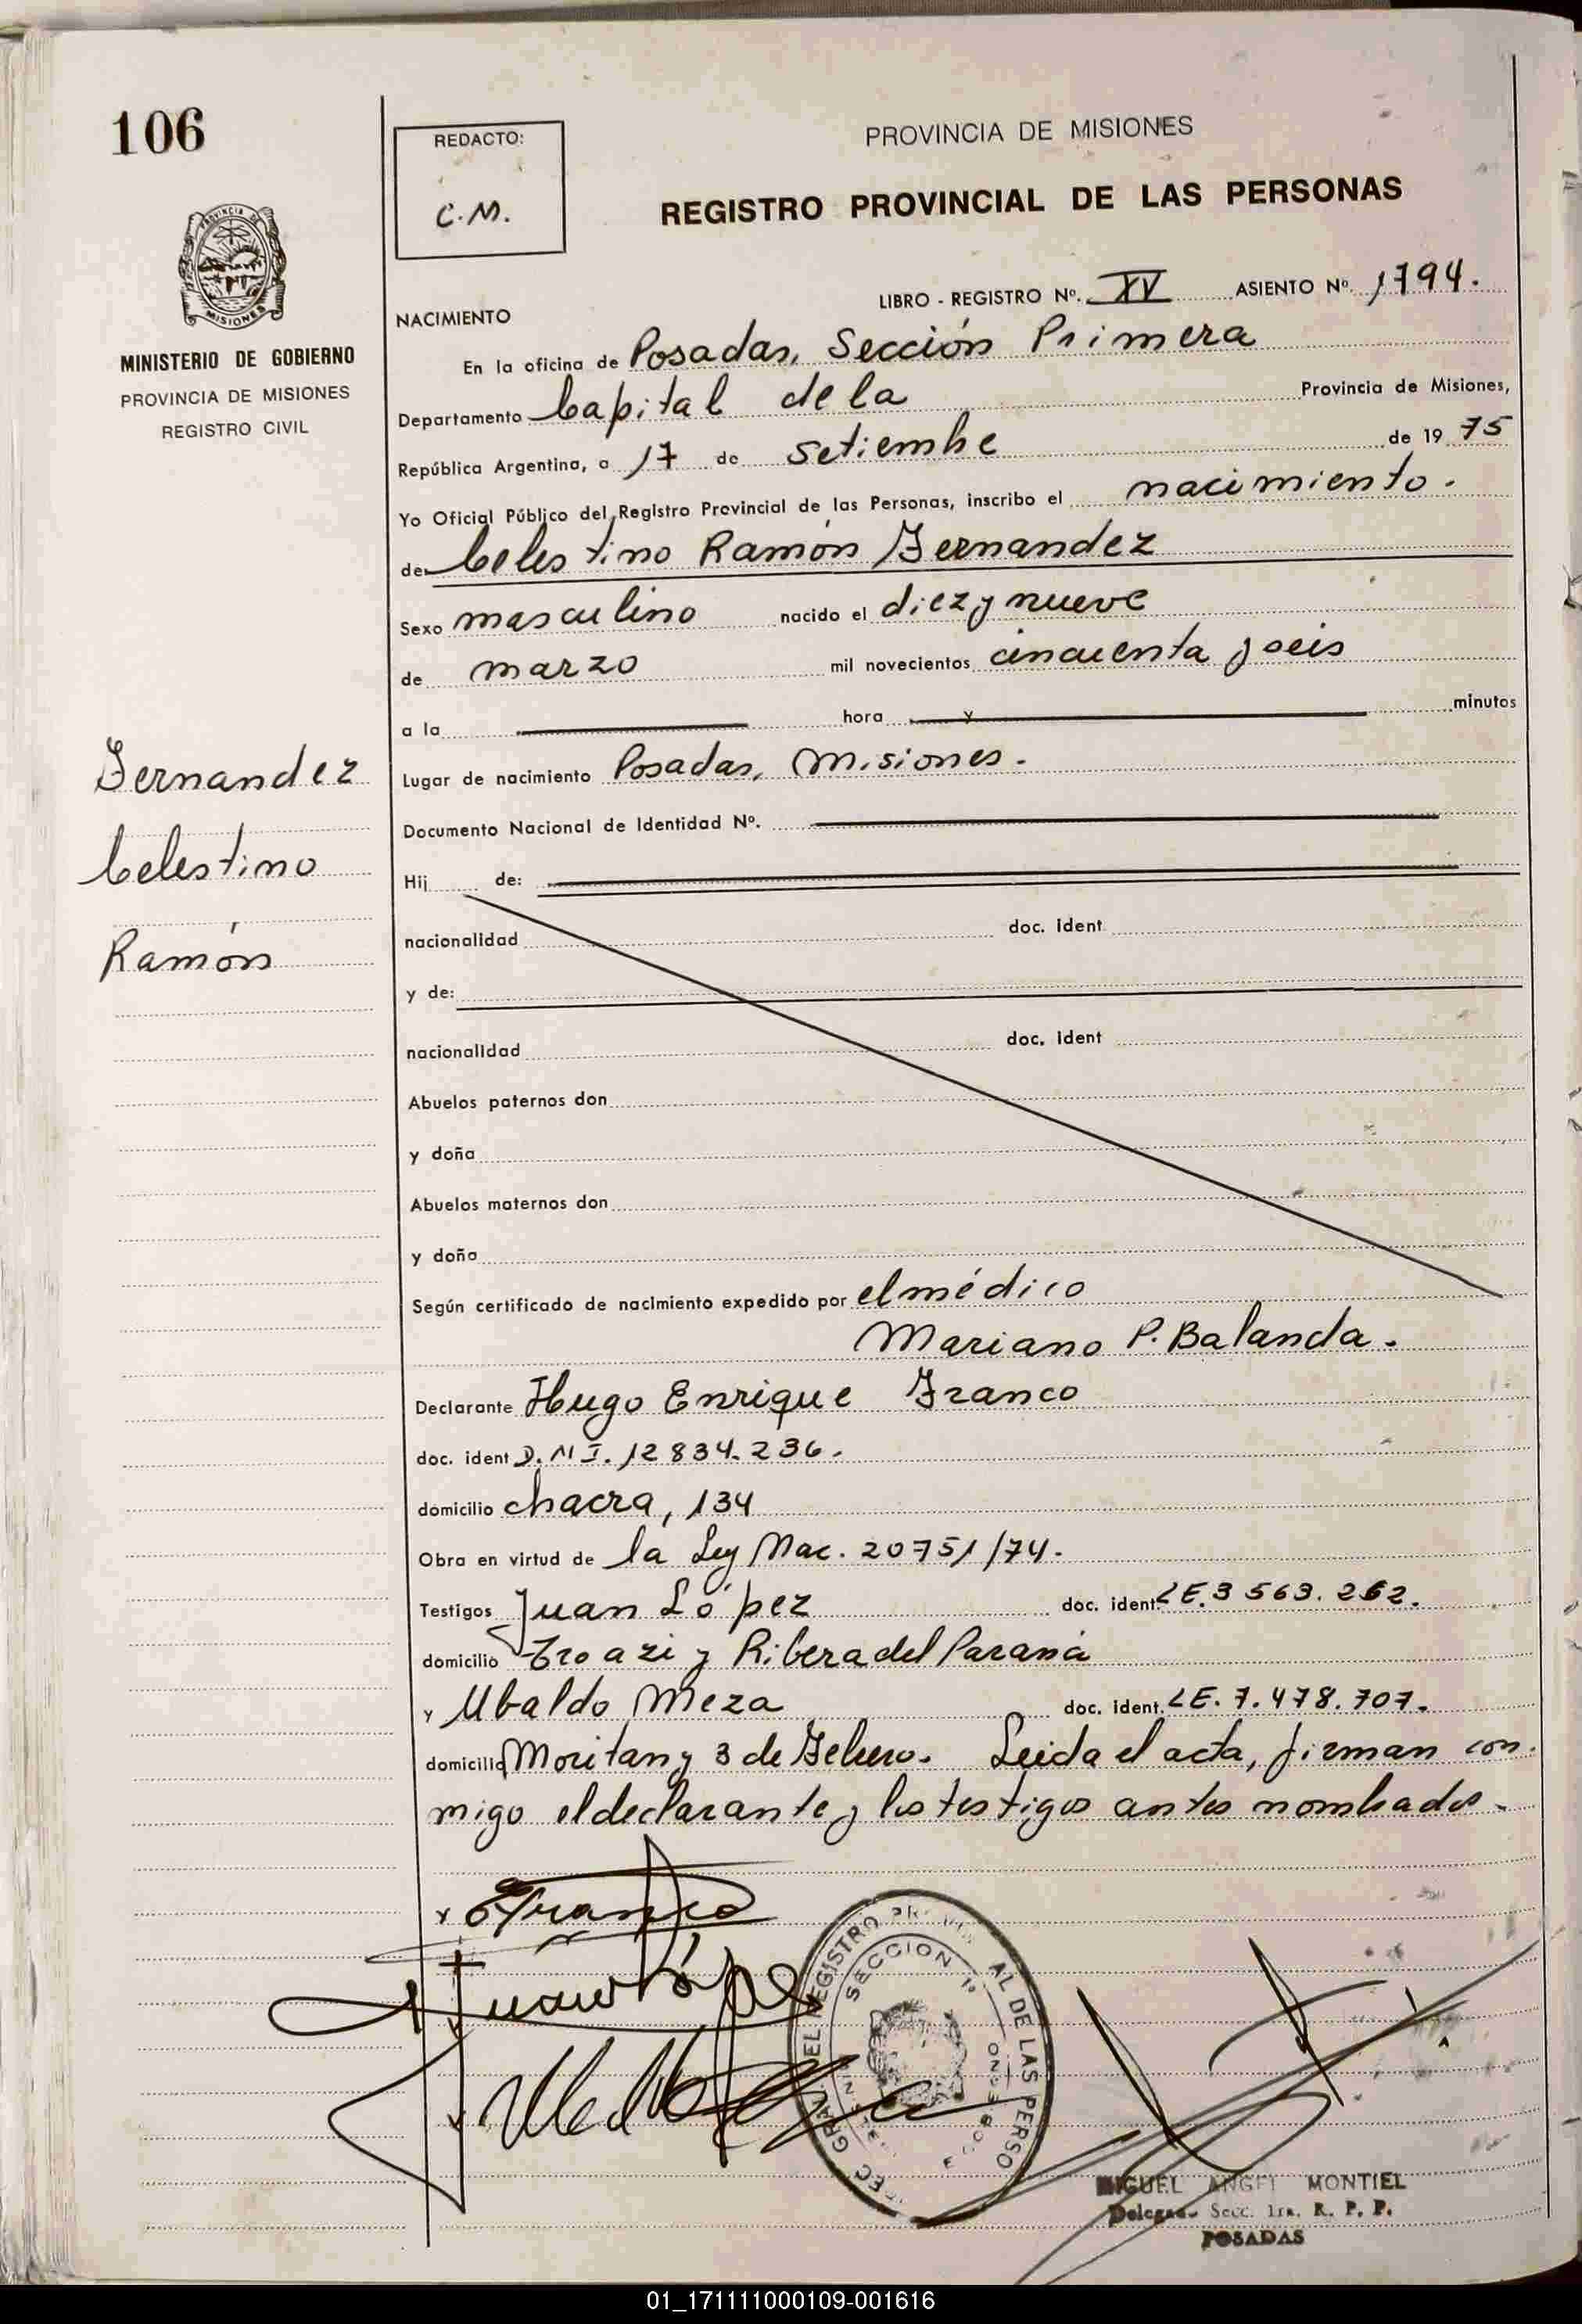 106
REDACTO:
C.M.
PROVINCIA DE MISIONES
REGISTRO PROVINCIAL DE LAS PERSONAS
PROVINCIA DE
MISIONES
MINISTERIO DE GOBIERNO
PROVINCIA DE MISIONES
REGISTRO CIVIL
LIBRO - REGISTRO Nº. XV ASIENTO Nº. 1794.
NACIMIENTO
En la oficina de Posadas, Sección Primera
Departamento Capital de la Provincia de Misiones,
República Argentina, a 17 de Setiembre de 19 75
Yo Oficial Público del Registro Provincial de las Personas, inscribo el nacimiento.
de Celestino Ramón Fernandez
Sexo masculino nacido el diez y nueve
de marzo mil novecientos cincuenta y seis
a la hora y minutos
Lugar de nacimiento Posadas, Misiones.
Documento Nacional de Identidad Nº.
Hij de:
nacionalidad doc. ident
y de:
nacionalidad doc. ident
Abuelos paternos don
y doña
Abuelos maternos don
y doña
Según certificado de nacimiento expedido por el médico
Mariano P. Balanda.
Declarante Hugo Enrique Franco
doc. ident D.N.I. 12834.236.
domicilio chacra, 134
Obra en virtud de la Ley Nac. 20751/74.
Testigos Juan López doc. ident LE. 3563.262.
domicilio y Ribera del Paraná
y Ubaldo Meza doc. ident. LE. 7.478.707.
domicilio y 3 de Febrero. Leida el acta, firman con
migo el declarante y los testigos antes nombrados.
Fernandez
Celestino
Ramón
Franco
Juan López
SECCION 1ª
MIGUEL ANGEL MONTIEL
Delegado Secc. 1ra. R. P. P.
POSADAS
01_171111000109-001616